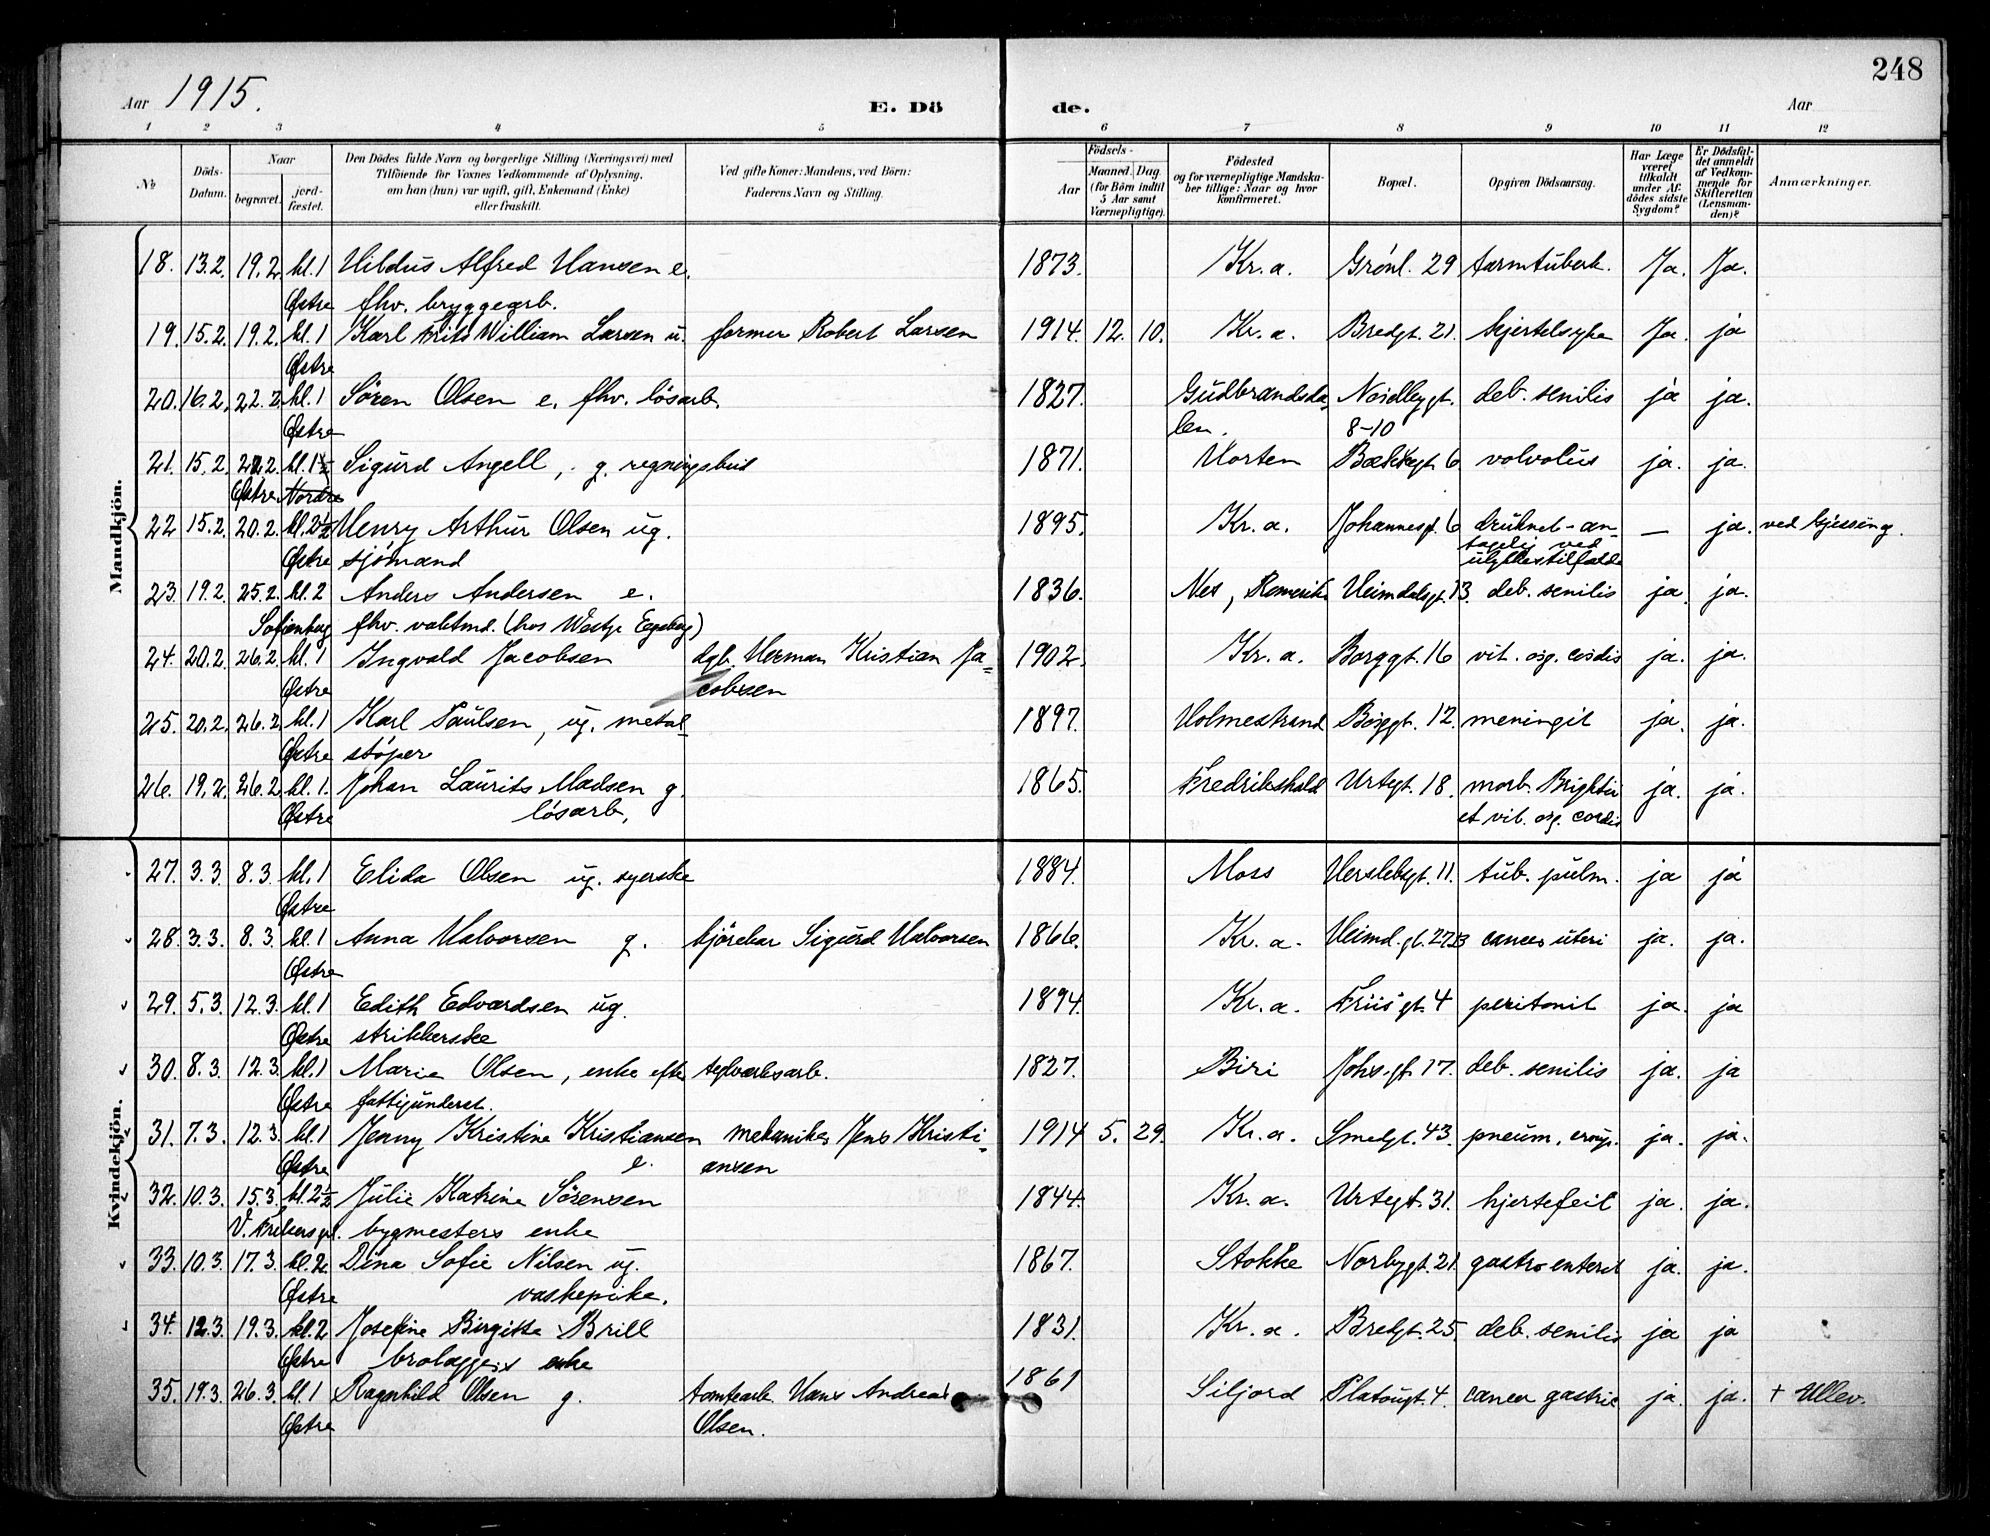 248
Aar 1915.
E. Döde.
Aar
1 2 3 4 5 6 7 8 9 10 11 12
№
Döds-Datum.
Naar
begravet.
jord-fæstet.
Den Dödes fulde Navn og borgerlige Stilling (Næringsvei) med
Tilföiende for Voxnes Vedkommende af Oplysning,
om han (hun) var ugift, gift, Enkemand (Enke)
eller fraskilt.
Ved gifte Koner: Mandens, ved Börn:
Faderens Navn og Stilling.
Födsels-
Aar
Maaned. Dag
(for Börn indtil
5 Aar samt
Værnepligtige).
Födested
og for værnepligtige Mandska-
ber tillige: Naar og hvor
konfirmeret.
Bopæl.
Opgiven Dödsaarsag.
Har Læge
været
tilkaldt
under Af-
dödes sidste
Sygdom?
Er Dödsfal-
det anmeldt
af Vedkom-
mende for
Skifteretten
(Lensman-
den)?
Anmærkninger.
Mandkjön.
18. 13.2. 19.2 kl.1 Hildus Alfred Hansen e. 1873. Kr.a. Grönl. 29 tarmtuberk. Ja. Ja.
Østre fhv. bryggearb.
19. 15.2. 19.2. kl.1 Karl Frits William Larsen u. former Robert Larsen 1914. 12. 10. Kr.a. Bredgt. 21. hjertelsyke Ja. ja
Østre
20. 16.2. 22.2. kl.1 Sören Olsen e. fhv. lösarb. 1827. Gudbrandsda- Nordbygt. deb. senilis ja ja.
Østre len. 8-10
21. 15.2. 22.2. kl.1½ Sigurd Angell, g. regningsbud 1871. Horten Bakkegt. 6 volvolus ja. ja.
Østre Nordre
22 15.2. 20.2. kl.2½ Henry Arthur Olsen ug. 1895. Kr.a. Johannesgt. 6 druknet-an- — ja. ved Gjessing.
Østre sjömand tagelig ved
ulykkestilfælde
23. 19.2. 25.2. kl.2 Anders Andersen e. 1836. Nes, Romerike Heimdalsgt. 13. deb. senilis ja. ja.
Sofienberg fhv. vaktmd. (hos Westye Egeberg)
24. 20.2. 26.2. kl.1 Ingvald Jacobsen dgb. Herman Kristian Ja- 1902. Kr.a. Borggt. 16 vit. org. cordis ja. ja.
Østre cobsen
25. 20.2. 26.2 kl.1 Karl Paulsen, ug. metal- 1897. Holmestrand Borggt. 12. meningit ja. ja.
Østre støper
26. 19.2. 26.2 kl.1. Johan Laurits Madsen g. 1865. Fredrikshald Urtegt. 18. morb. Brightii ja. ja.
Østre lösarb. et vit. org. cordis
Kvindekjön.
27. 3.3. 8.3. kl.1 Elida Olsen ug. syerske 1884. Moss Herslebsgt. 11. tub. pulm. ja ja
Østre
28. 3.3. 8.3. kl.1 Anna Halvorsen g. kjörekar Sigurd Halvorsen 1866. Kr.a. Heimd.gt. 27B cancer uteri ja. ja.
Østre
29. 5.3. 12.3. kl.1 Edith Edvardsen ug. 1894. Kr.a. Friis'gt. 4 peritonit ja. ja
Østre strikkerske
30. 8.3. 12.3. kl.1 Marie Olsen, enke efter teglverksarb. 1827. Biri Johs.gt. 17. deb. senilis ja. ja
Østre fattigunderst.
31. 7.3. 12.3. kl.1 Jenny Kristine Kristiansen mekaniker Jens Kristi- 1914 5. 29. Kr.a. Smedgt. 43. pneum. croup. ja. ja.
Østre e. ansen
32. 10.3. 15.3. kl.2½ Julie Katrine Sörensen 1844. Kr.a. Urtegt. 31. hjertefeil ja. ja.
V. Frelsers gvl. bygmesters enke
33. 10.3. 17.3. kl.2. Dina Sofie Nilsen ug. 1867. Stokke Norbygt. 21. gastro enterit ja. ja.
Østre vaskepike.
34. 12.3. 19.3. kl.2 Josefine Birgitte Brill 1831. Kr.a. Bredgt. 25 deb. senilis ja ja
Østre brolæggers enke
35. 19.3. 26.3. kl.1 Ragnhild Olsen g. tomtearb. Hans Andreas 1861 Siljord Platousgt. 4. cancer gastric ja. ja. + Ullev.
Østre Olsen.